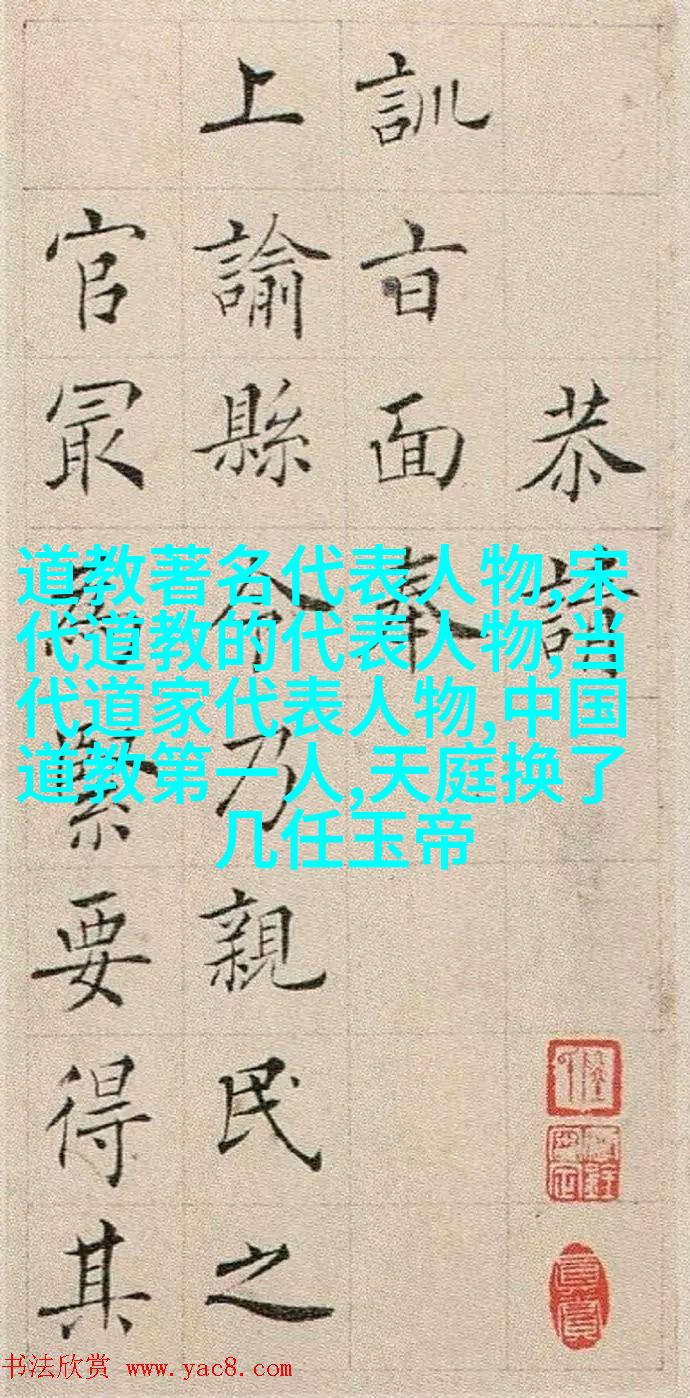 恭請
訓旨面奉
上諭縣令乃親民之
官冣緊要得其
道教著名代表人物,宋
代道教的代表人物,当
代道家代表人物,中国
道教第一人,天庭换了
几任玉帝
书法欣赏 www.yac8.com